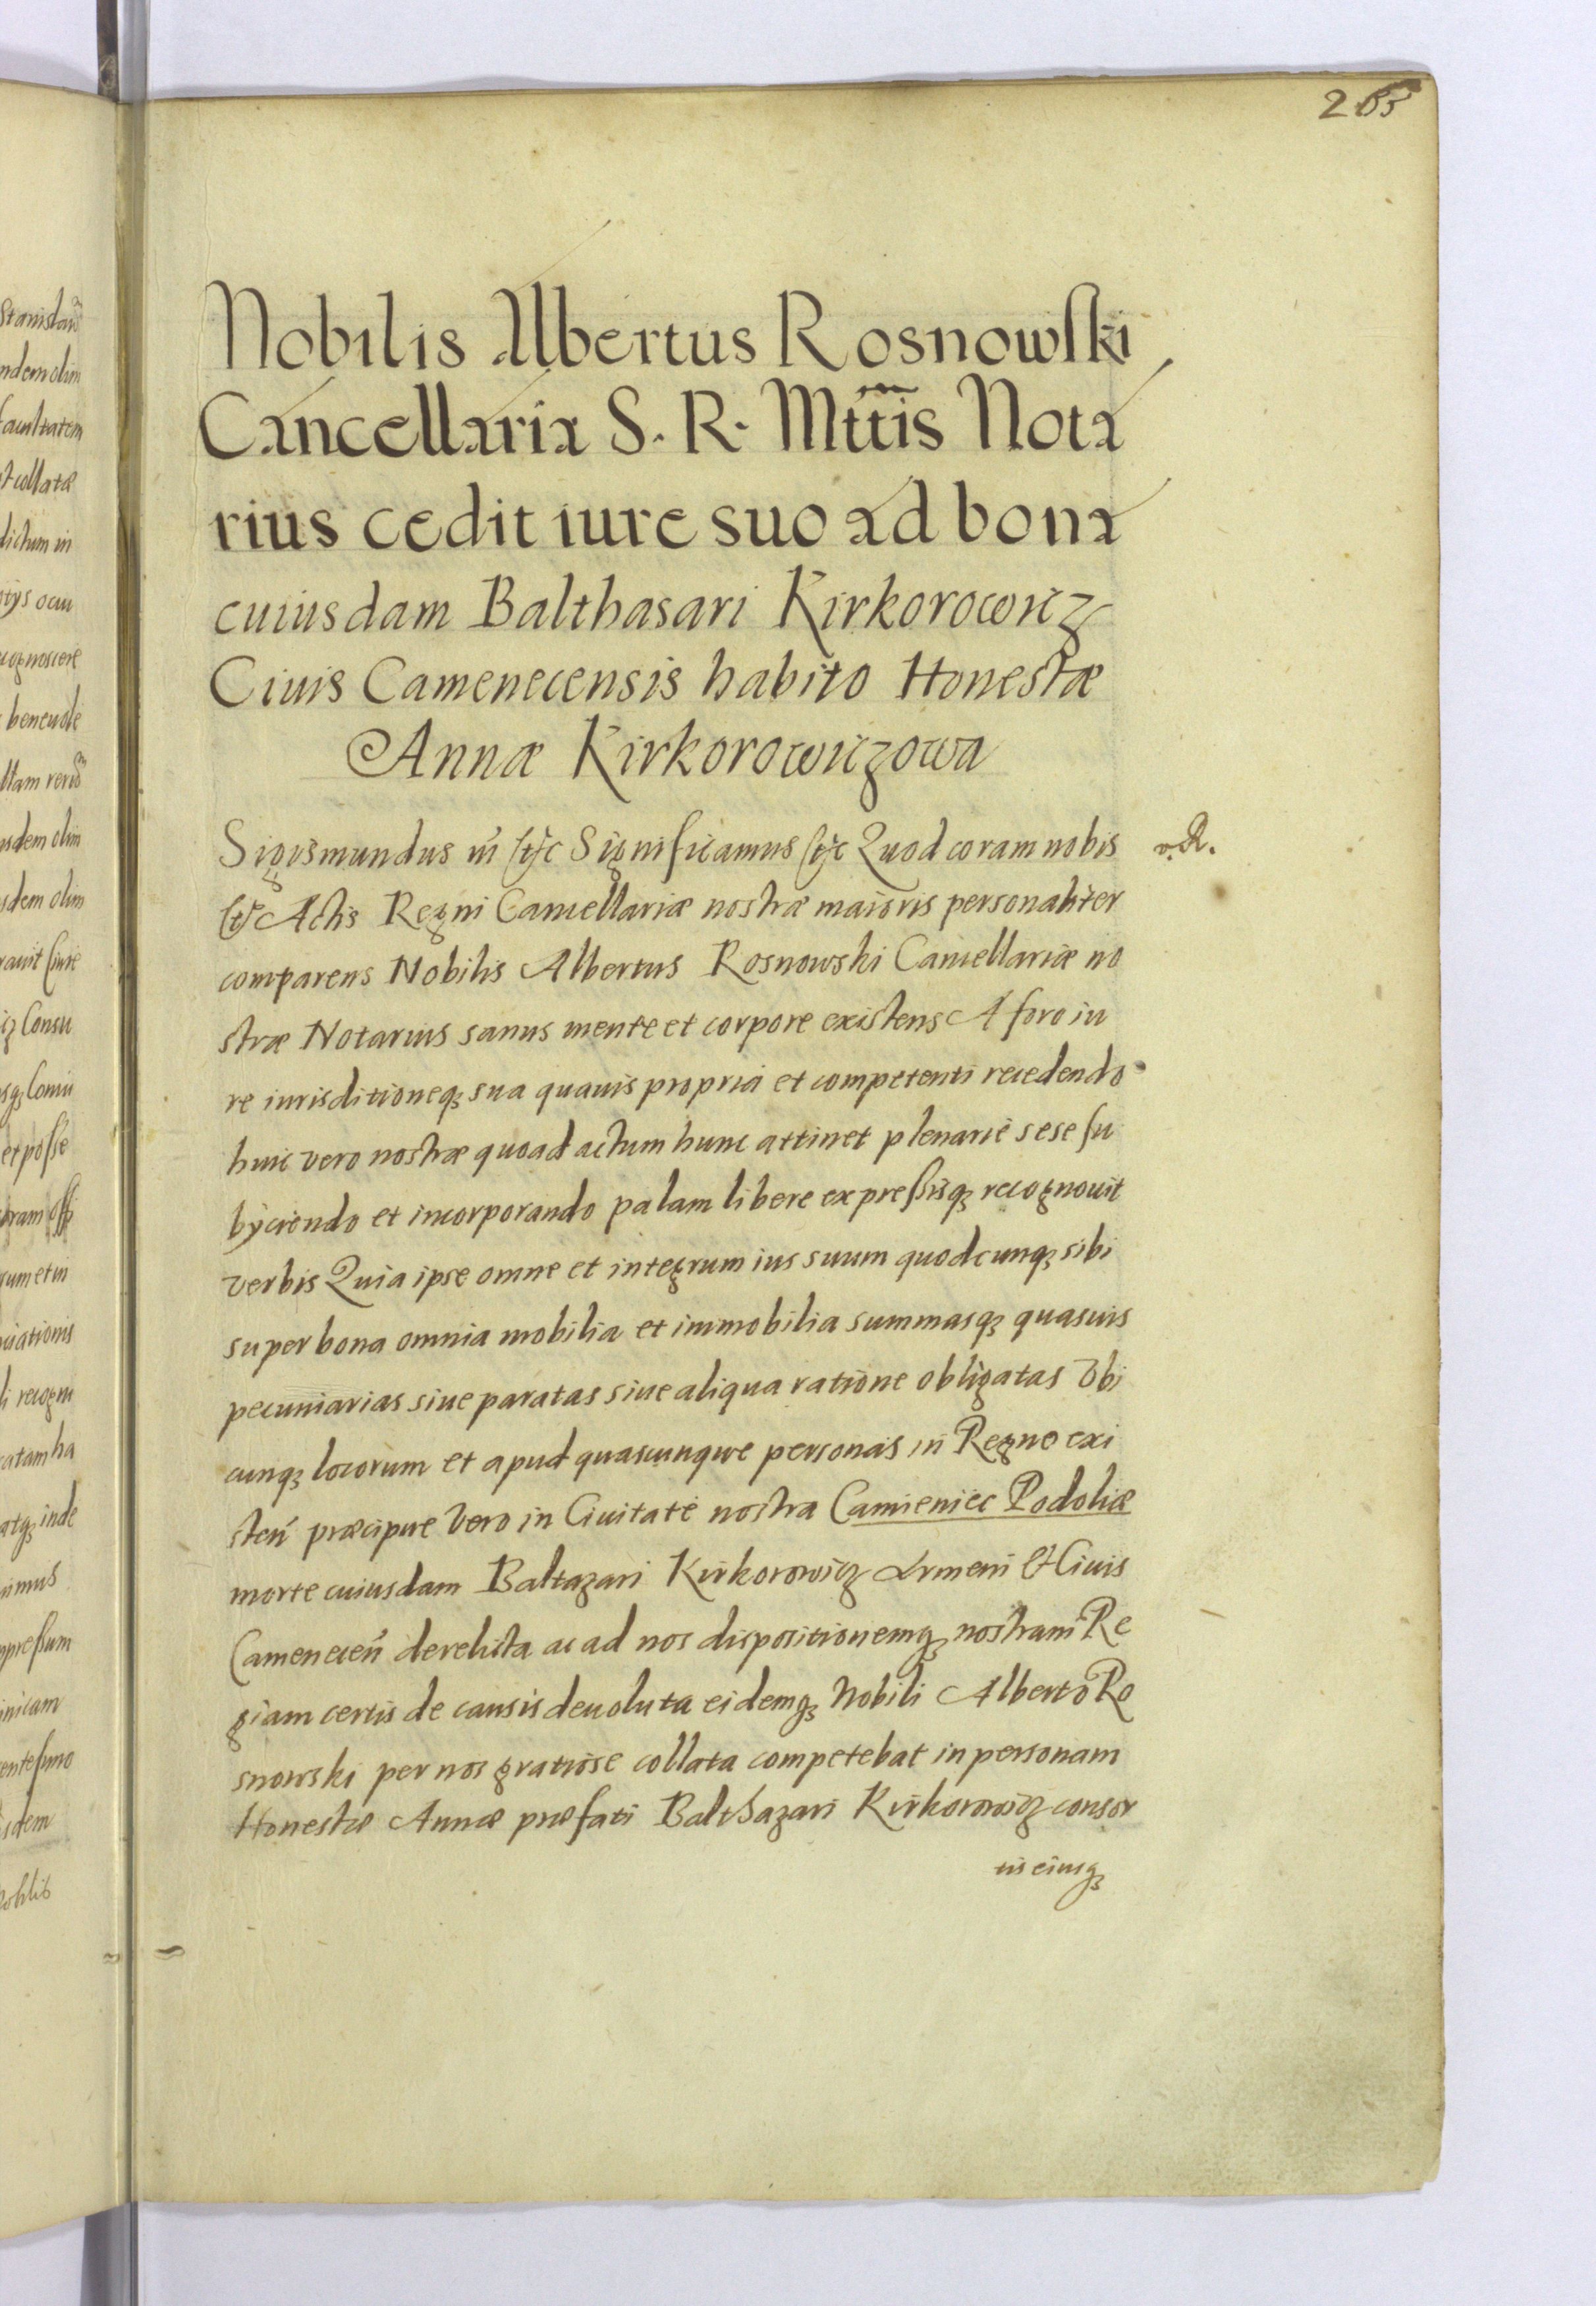 Nobilis Albertus Rosnowski
Cancellaria S. R. Mttis Nota
rius cedit iure suo ad bona
cuiusdam Balthasari Kirkorowicz
Ciuis Camenecensis habito Honestæ
Annæ Kirkorowiczowa
Sigismundus &c Significamus &c Quod coram nobis
&c Actis Regni Cancellariæ nostræ maioris personaliter
comparens Nobilis Albertus Rosnowski Cancellariæ no
stræ Notarius sanus mente et corpore existens A foro iu
re iurisditioneq; sua quauis propria et competenti recedendo
huic vero nostræ quoad actum hunc attinet plenarie sese su
byciendo et incorporando palam libere expressisq; recognouit
verbis Quia ipse omne et integrum ius suum quodcunq; sibi
super bona omnia mobilia et immobilia summasq; quasuis
pecuniarias siue paratas siue aliqua ratione obligatas Vbi
cunq; locorum et apud quascunque personas in Regno exi
sten̄ præcipue Vero in Ciuitate nostra Camieniec Podoliæ
morte cuiusdam Baltazari Kirkorowicz Armeni & Ciuis
Camenecen̄ derelicta ac ad nos dispositionemq; nostram Re
giam certis de causis deuoluta eidemq; Nobili Alberto Ro
snowski per nos gratiose collata competebat in personam
Honestæ Annæ præfati Balthazari Kirkorowicz consor
tis eiusq;